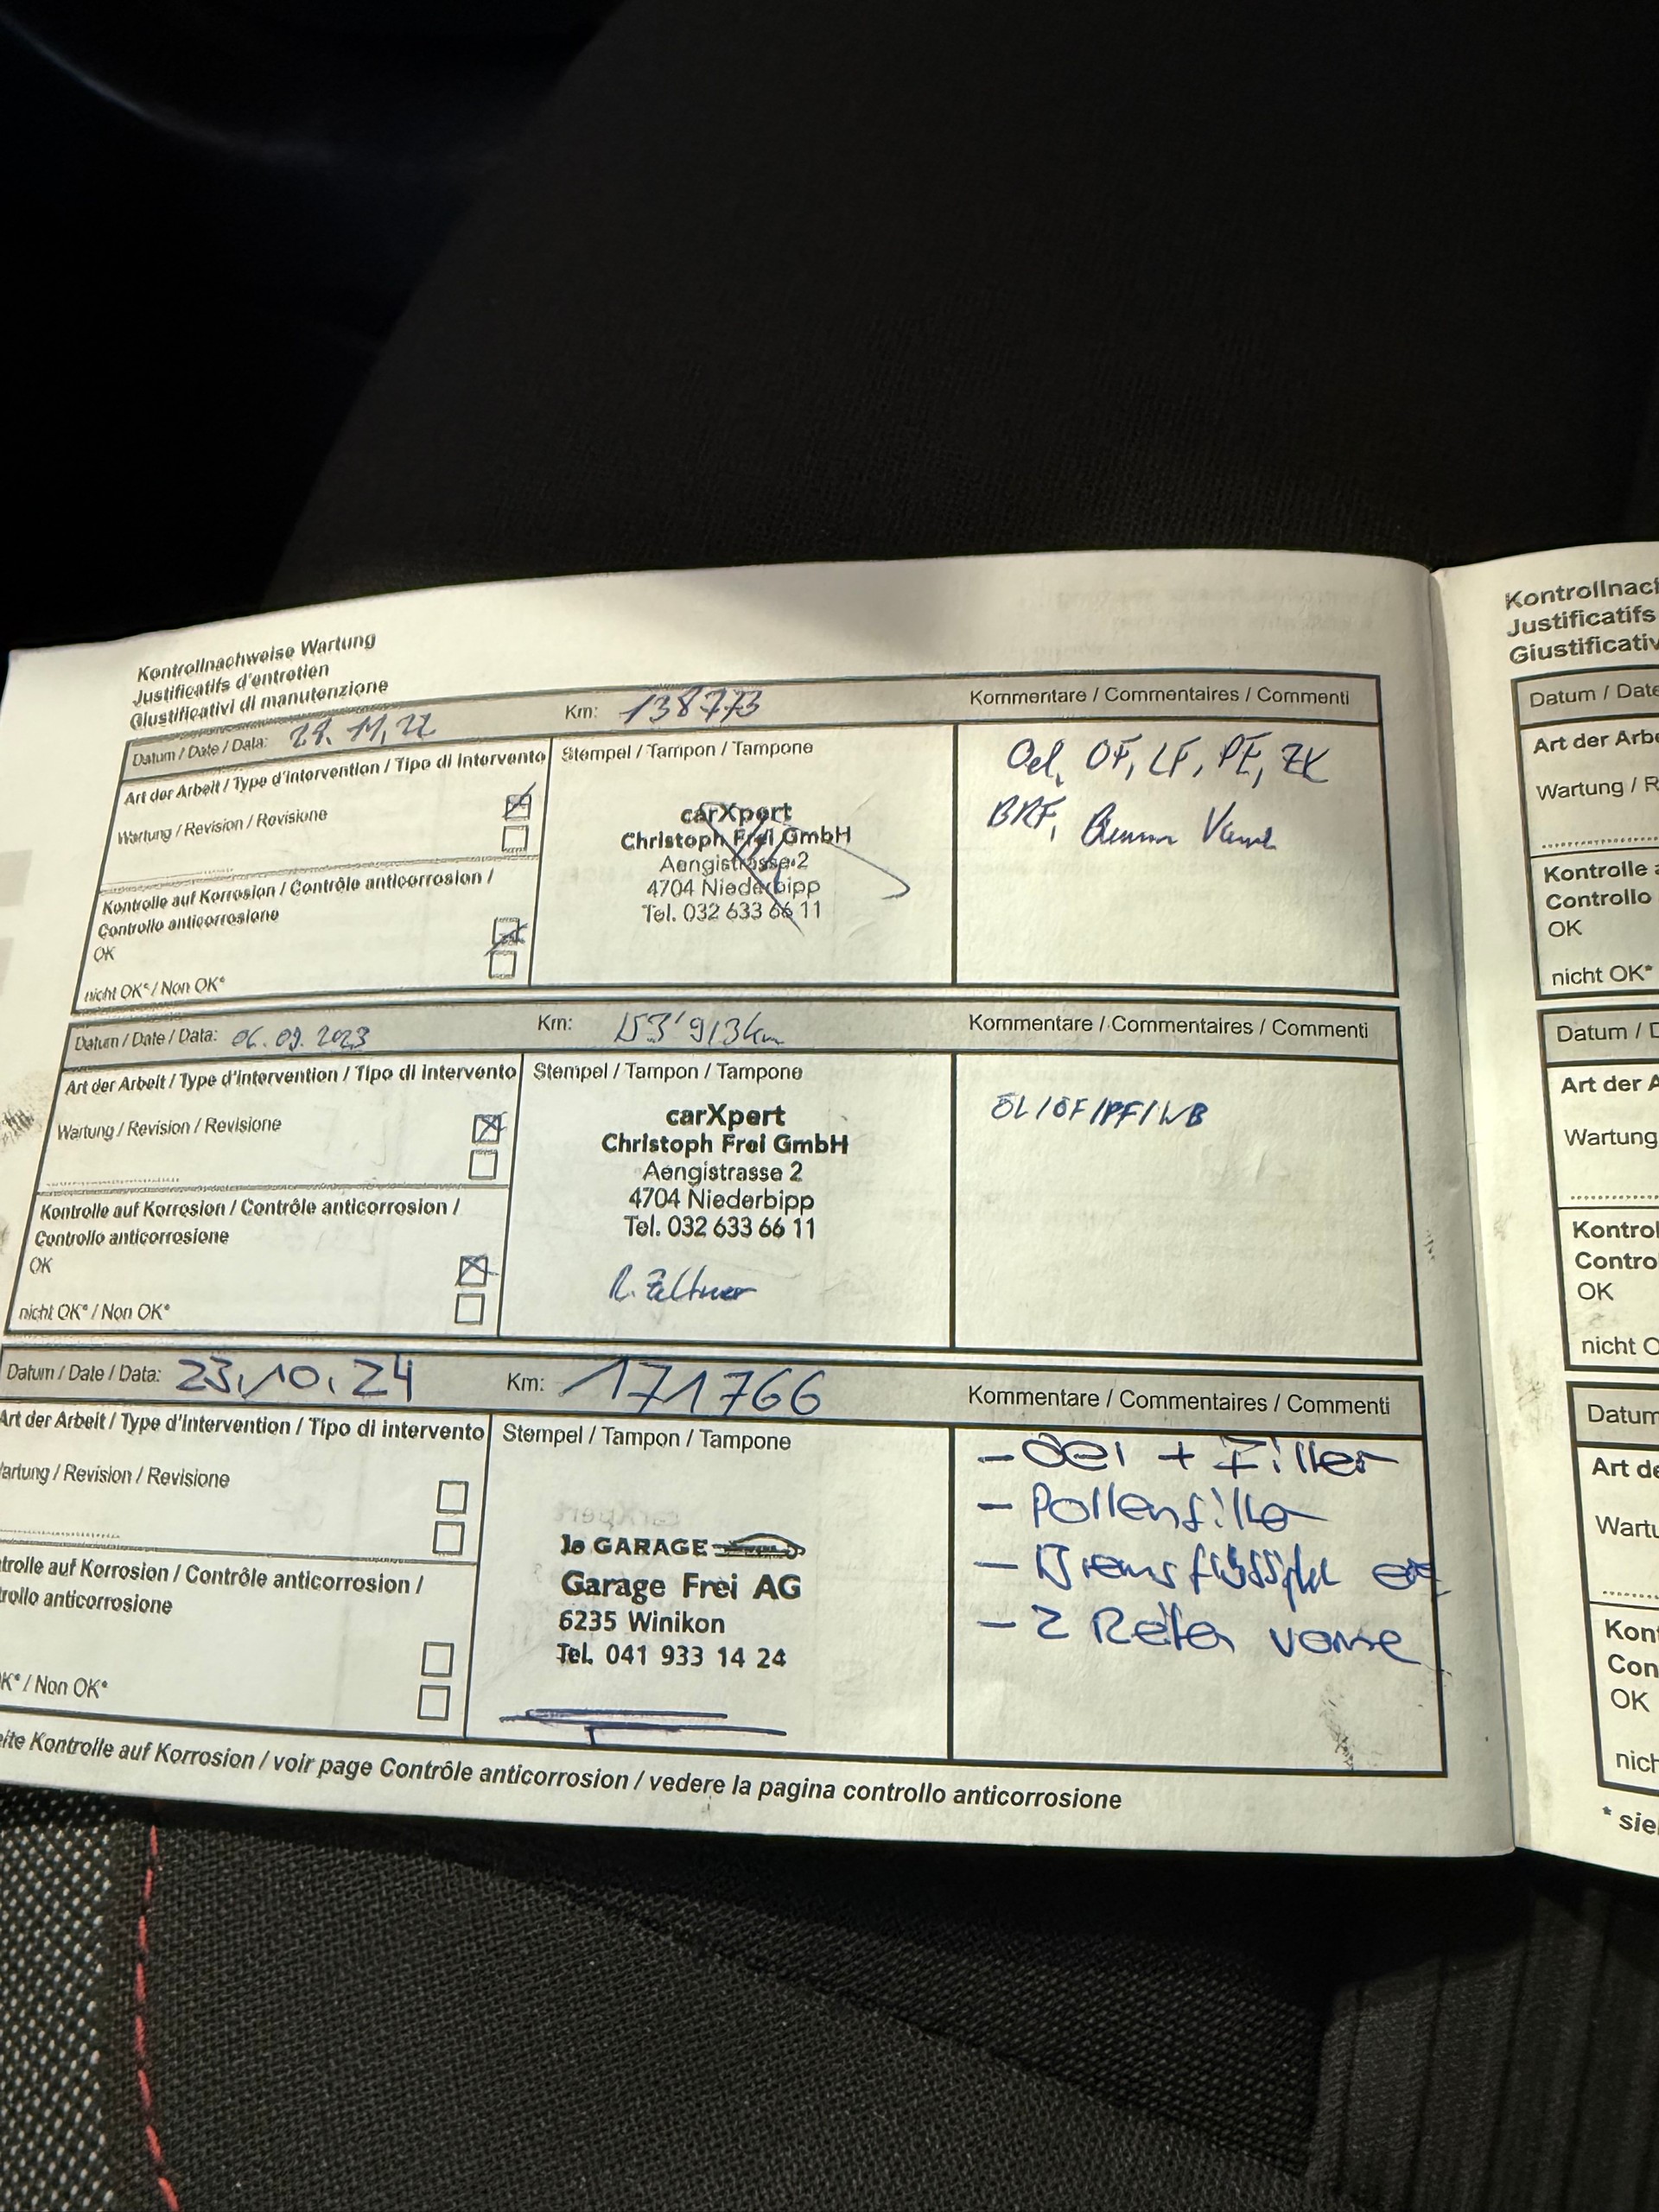 Kontrollnachweise Wartung
Justificatifs d'entretien
Giustificativi di manutenzione
Datum / Date / Data: 11.22
Km: 138773
Kommentare / Commentaires / Commenti
Art der Arbeit / Type d'intervention / Tipo di intervento
Wartung / Revision / Revisione
Kontrolle auf Korrosion / Contrôle anticorrosion /
Controllo anticorrosione
OK
nicht OK* / Non OK*
Stempel / Tampon / Tampone
carXpert
Christoph Frei GmbH
Aengistrasse 2
4704 Niederbipp
Tel. 032 633 66 11
Oel, OF, LF, PF, ZK
BRF,
Datum / Date / Data: 06.09.2023
Km: 153'913km
Kommentare / Commentaires / Commenti
Art der Arbeit / Type d'intervention / Tipo di intervento
Wartung / Revision / Revisione
Kontrolle auf Korrosion / Contrôle anticorrosion /
Controllo anticorrosione
OK
nicht OK* / Non OK*
Stempel / Tampon / Tampone
carXpert
Christoph Frei GmbH
Aengistrasse 2
4704 Niederbipp
Tel. 032 633 66 11
R. Zeltner
ÖL/ÖF/PF/WB
Datum / Date / Data: 23.10.24
Km: 171766
Kommentare / Commentaires / Commenti
Art der Arbeit / Type d'intervention / Tipo di intervento
artung / Revision / Revisione
trolle auf Korrosion / Contrôle anticorrosion /
rollo anticorrosione
K* / Non OK*
Stempel / Tampon / Tampone
le GARAGE
Garage Frei AG
6235 Winikon
Tel. 041 933 14 24
- Oel + Filter
- Pollenfilter
- Bremsflüssigkeit
- 2 Reifen vorne
eite Kontrolle auf Korrosion / voir page Contrôle anticorrosion / vedere la pagina controllo anticorrosione
Kontrollnach
Justificatifs
Giustificativ
Datum / Date
Art der Arbe
Wartung / R
Kontrolle a
Controllo
OK
nicht OK*
Datum / D
Art der A
Wartung
Kontrol
Contro
OK
nicht O
Datum
Art de
Wartu
Kont
Con
OK
nich
* sie